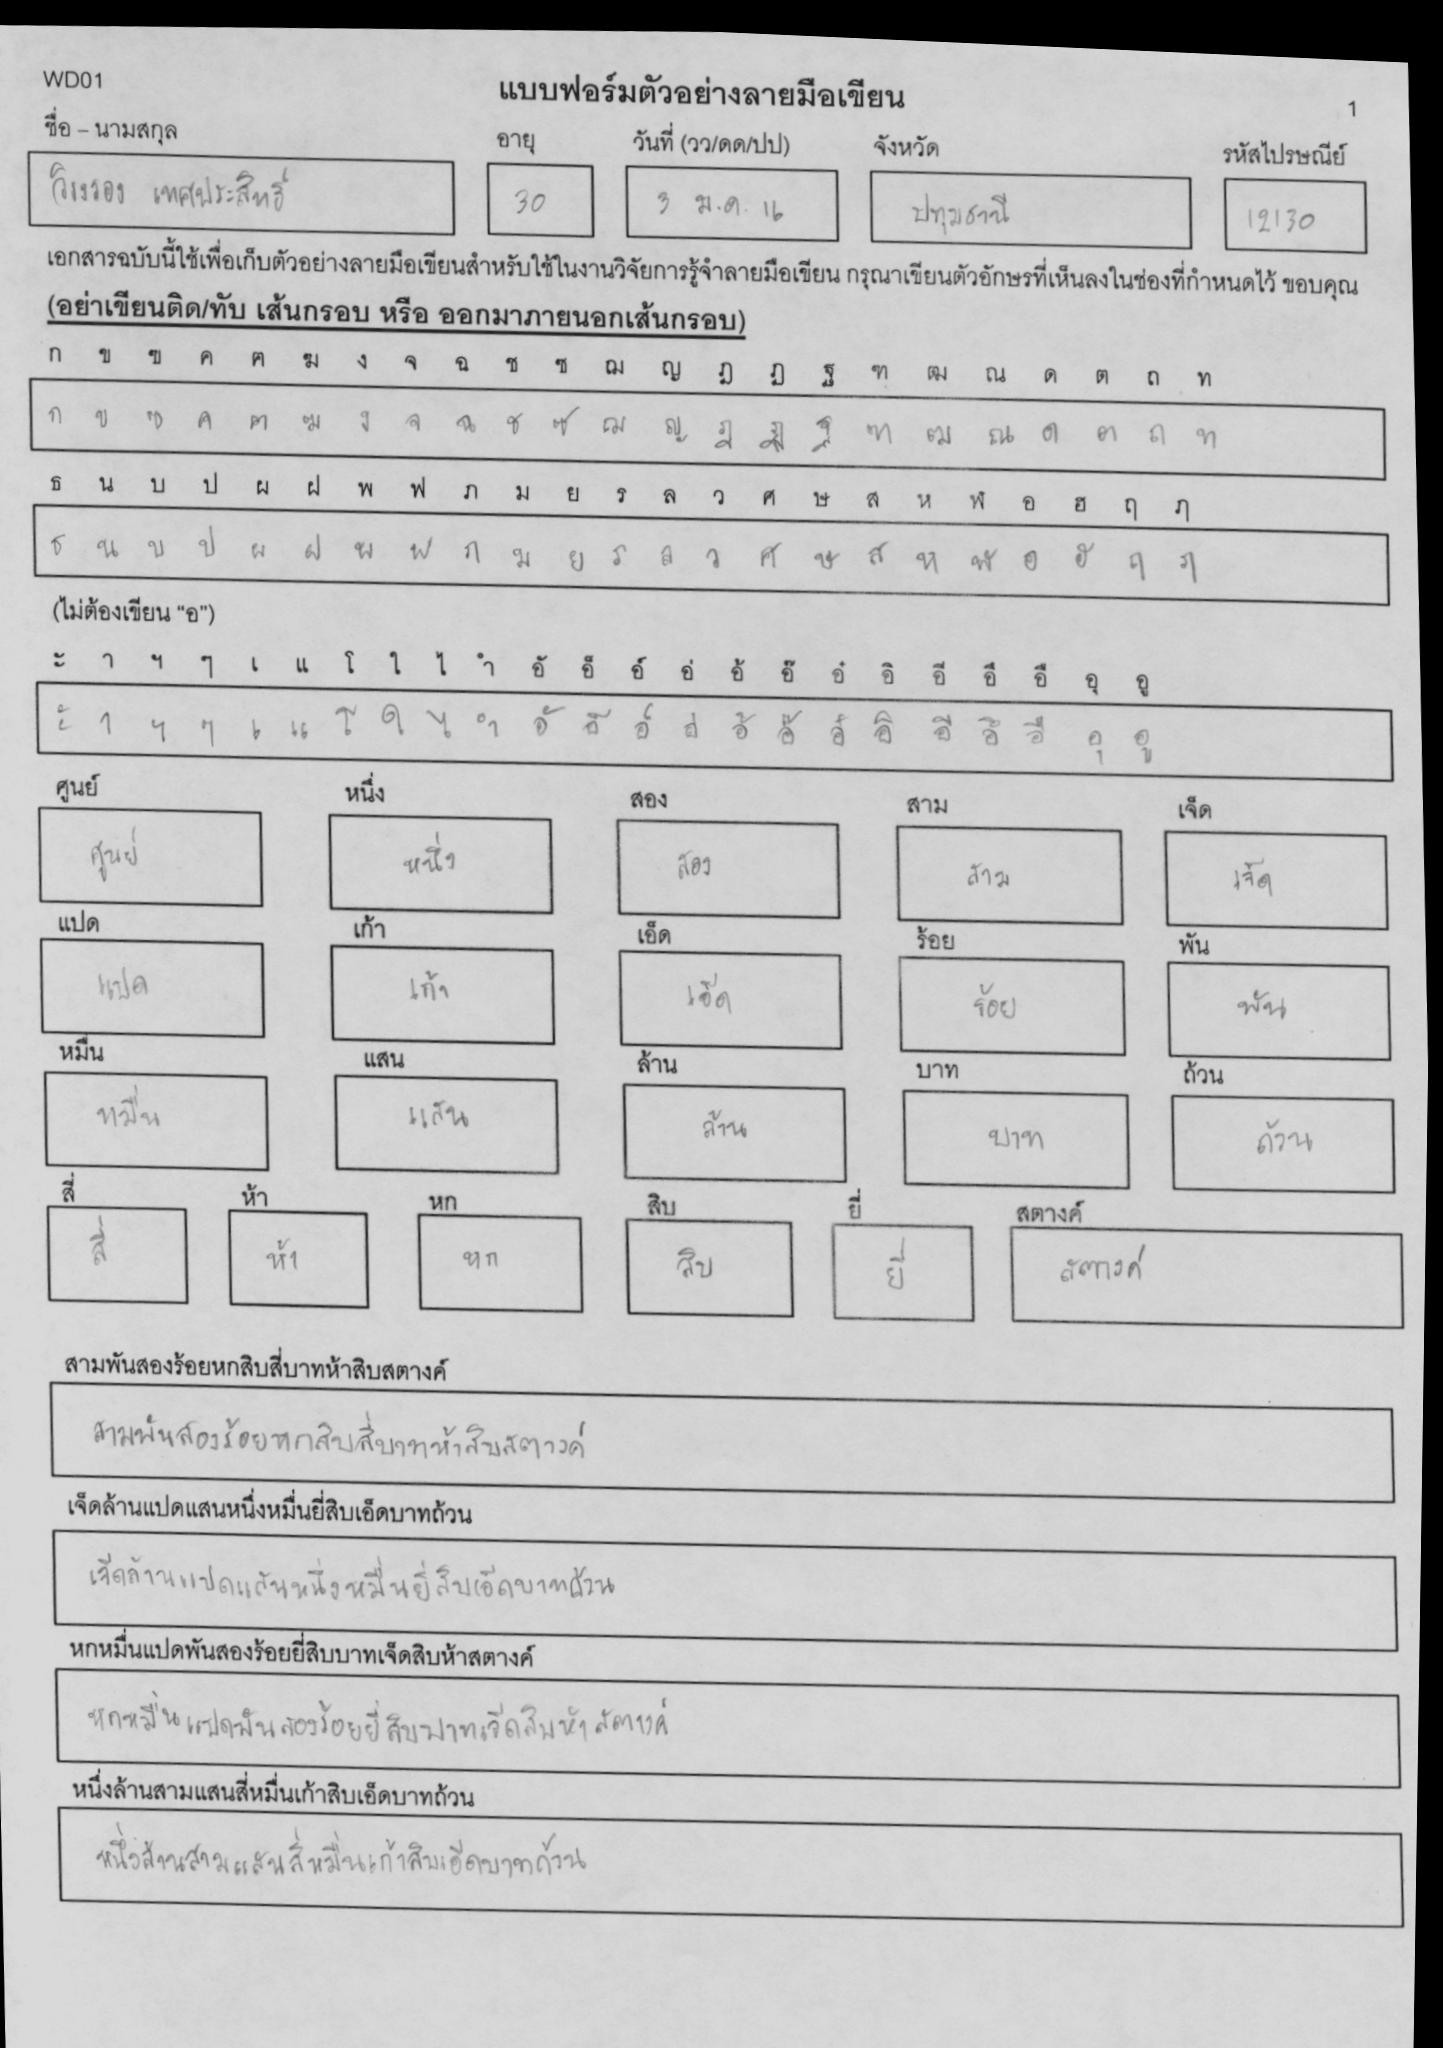 WD01
แบบฟอร์มตัวอย่างลายมือเขียน
1
ชื่อ – นามสกุล อายุ วันที่ (วว/ดด/ปป) จังหวัด รหัสไปรษณีย์
เทศประสิทธิ์ 30 3 ม.ค. 16 ปทุมธานี 12130
เอกสารฉบับนี้ใช้เพื่อเก็บตัวอย่างลายมือเขียนสำหรับใช้ในงานวิจัยการรู้จำลายมือเขียน กรุณาเขียนตัวอักษรที่เห็นลงในช่องที่กำหนดไว้ ขอบคุณ
(อย่าเขียนติด/ทับ เส้นกรอบ หรือ ออกมาภายนอกเส้นกรอบ)
ก ข ฃ ค ฅ ฆ ง จ ฉ ช ซ ฌ ญ ฎ ฏ ฐ ฑ ฒ ณ ด ต ถ ท
ก ข ฃ ค ฅ ฆ ง จ ฉ ช ซ ฌ ญ ฎ ฏ ฐ ฑ ฒ ณ ด ต ถ ท
ธ น บ ป ผ ฝ พ ฟ ภ ม ย ร ล ว ศ ษ ส ห ฬ อ ฮ ฤ ภ
ธ น บ ป ผ ฝ พ ฟ ภ ม ย ร ล ว ศ ษ ส ห ฬ อ ฮ ฤ ภ
(ไม่ต้องเขียน "อ")
ะ า ฯ ๆ เ แ โ ใ ไ ำ อั อ็ อ์ อ่ อ้ อ๊ อ๋ อิ อี อึ อื อุ อู
ะ า ฯ ๆ เ แ โ ใ ไ ำ อั อ็ อ์ อ่ อ้ อ๊ อ๋ อิ อี อึ อื อุ อู
ศูนย์ หนึ่ง สอง สาม เจ็ด
ศูนย์ หนึ่ง สอง สาม เจ็ด
แปด เก้า เอ็ด ร้อย พัน
แปด เก้า เอ็ด ร้อย พัน
หมื่น แสน ล้าน บาท ถ้วน
หมื่น แสน ล้าน บาท ถ้วน
สี่ ห้า หก สิบ ยี่ สตางค์
สี่ ห้า หก สิบ ยี่ สตางค์
สามพันสองร้อยหกสิบสี่บาทห้าสิบสตางค์
สามพันสองร้อยหกสิบสี่บาทห้าสิบสตางค์
เจ็ดล้านแปดแสนหนึ่งหมื่นยี่สิบเอ็ดบาทถ้วน
เจ็ดล้านแปดแสนหนึ่งหมื่นยี่สิบเอ็ดบาทถ้วน
หกหมื่นแปดพันสองร้อยยี่สิบบาทเจ็ดสิบห้าสตางค์
หกหมื่นแปดพันสองร้อยยี่สิบบาทเจ็ดสิบห้าสตางค์
หนึ่งล้านสามแสนสี่หมื่นเก้าสิบเอ็ดบาทถ้วน
หนึ่งล้านสามแสนสี่หมื่นเก้าสิบเอ็ดบาทถ้วน